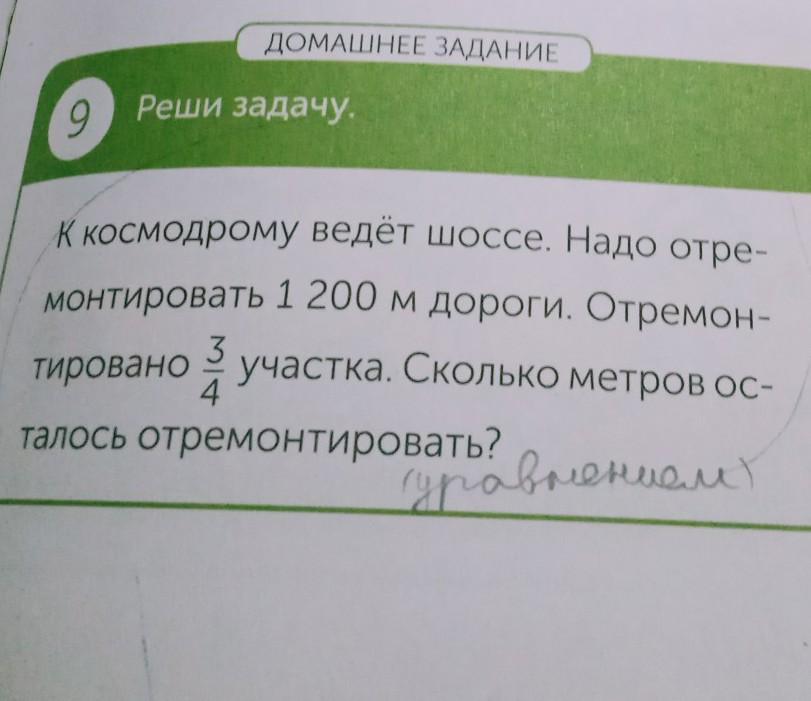 ДОМАШНЕЕ ЗАДАНИЕ
9 Реши задачу.
К космодрому ведёт шоссе. Надо отре-
монтировать 1 200 м дороги. Отремон-
тировано 3/4 участка. Сколько метров ос-
талось отремонтировать?
(уравнением)